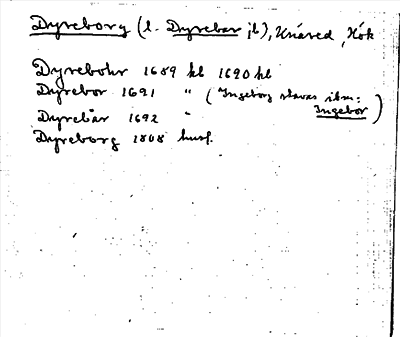 Dyreborg (l. Dyrebar jb), Knäred, Hök
Dyrebohr 1689 kl 1690 kl
Dyrebor 1691 " (Ingeborg skrivas ibm:
Dyrebår 1692 " Ingebor)
Dyreborg 1808 husf.